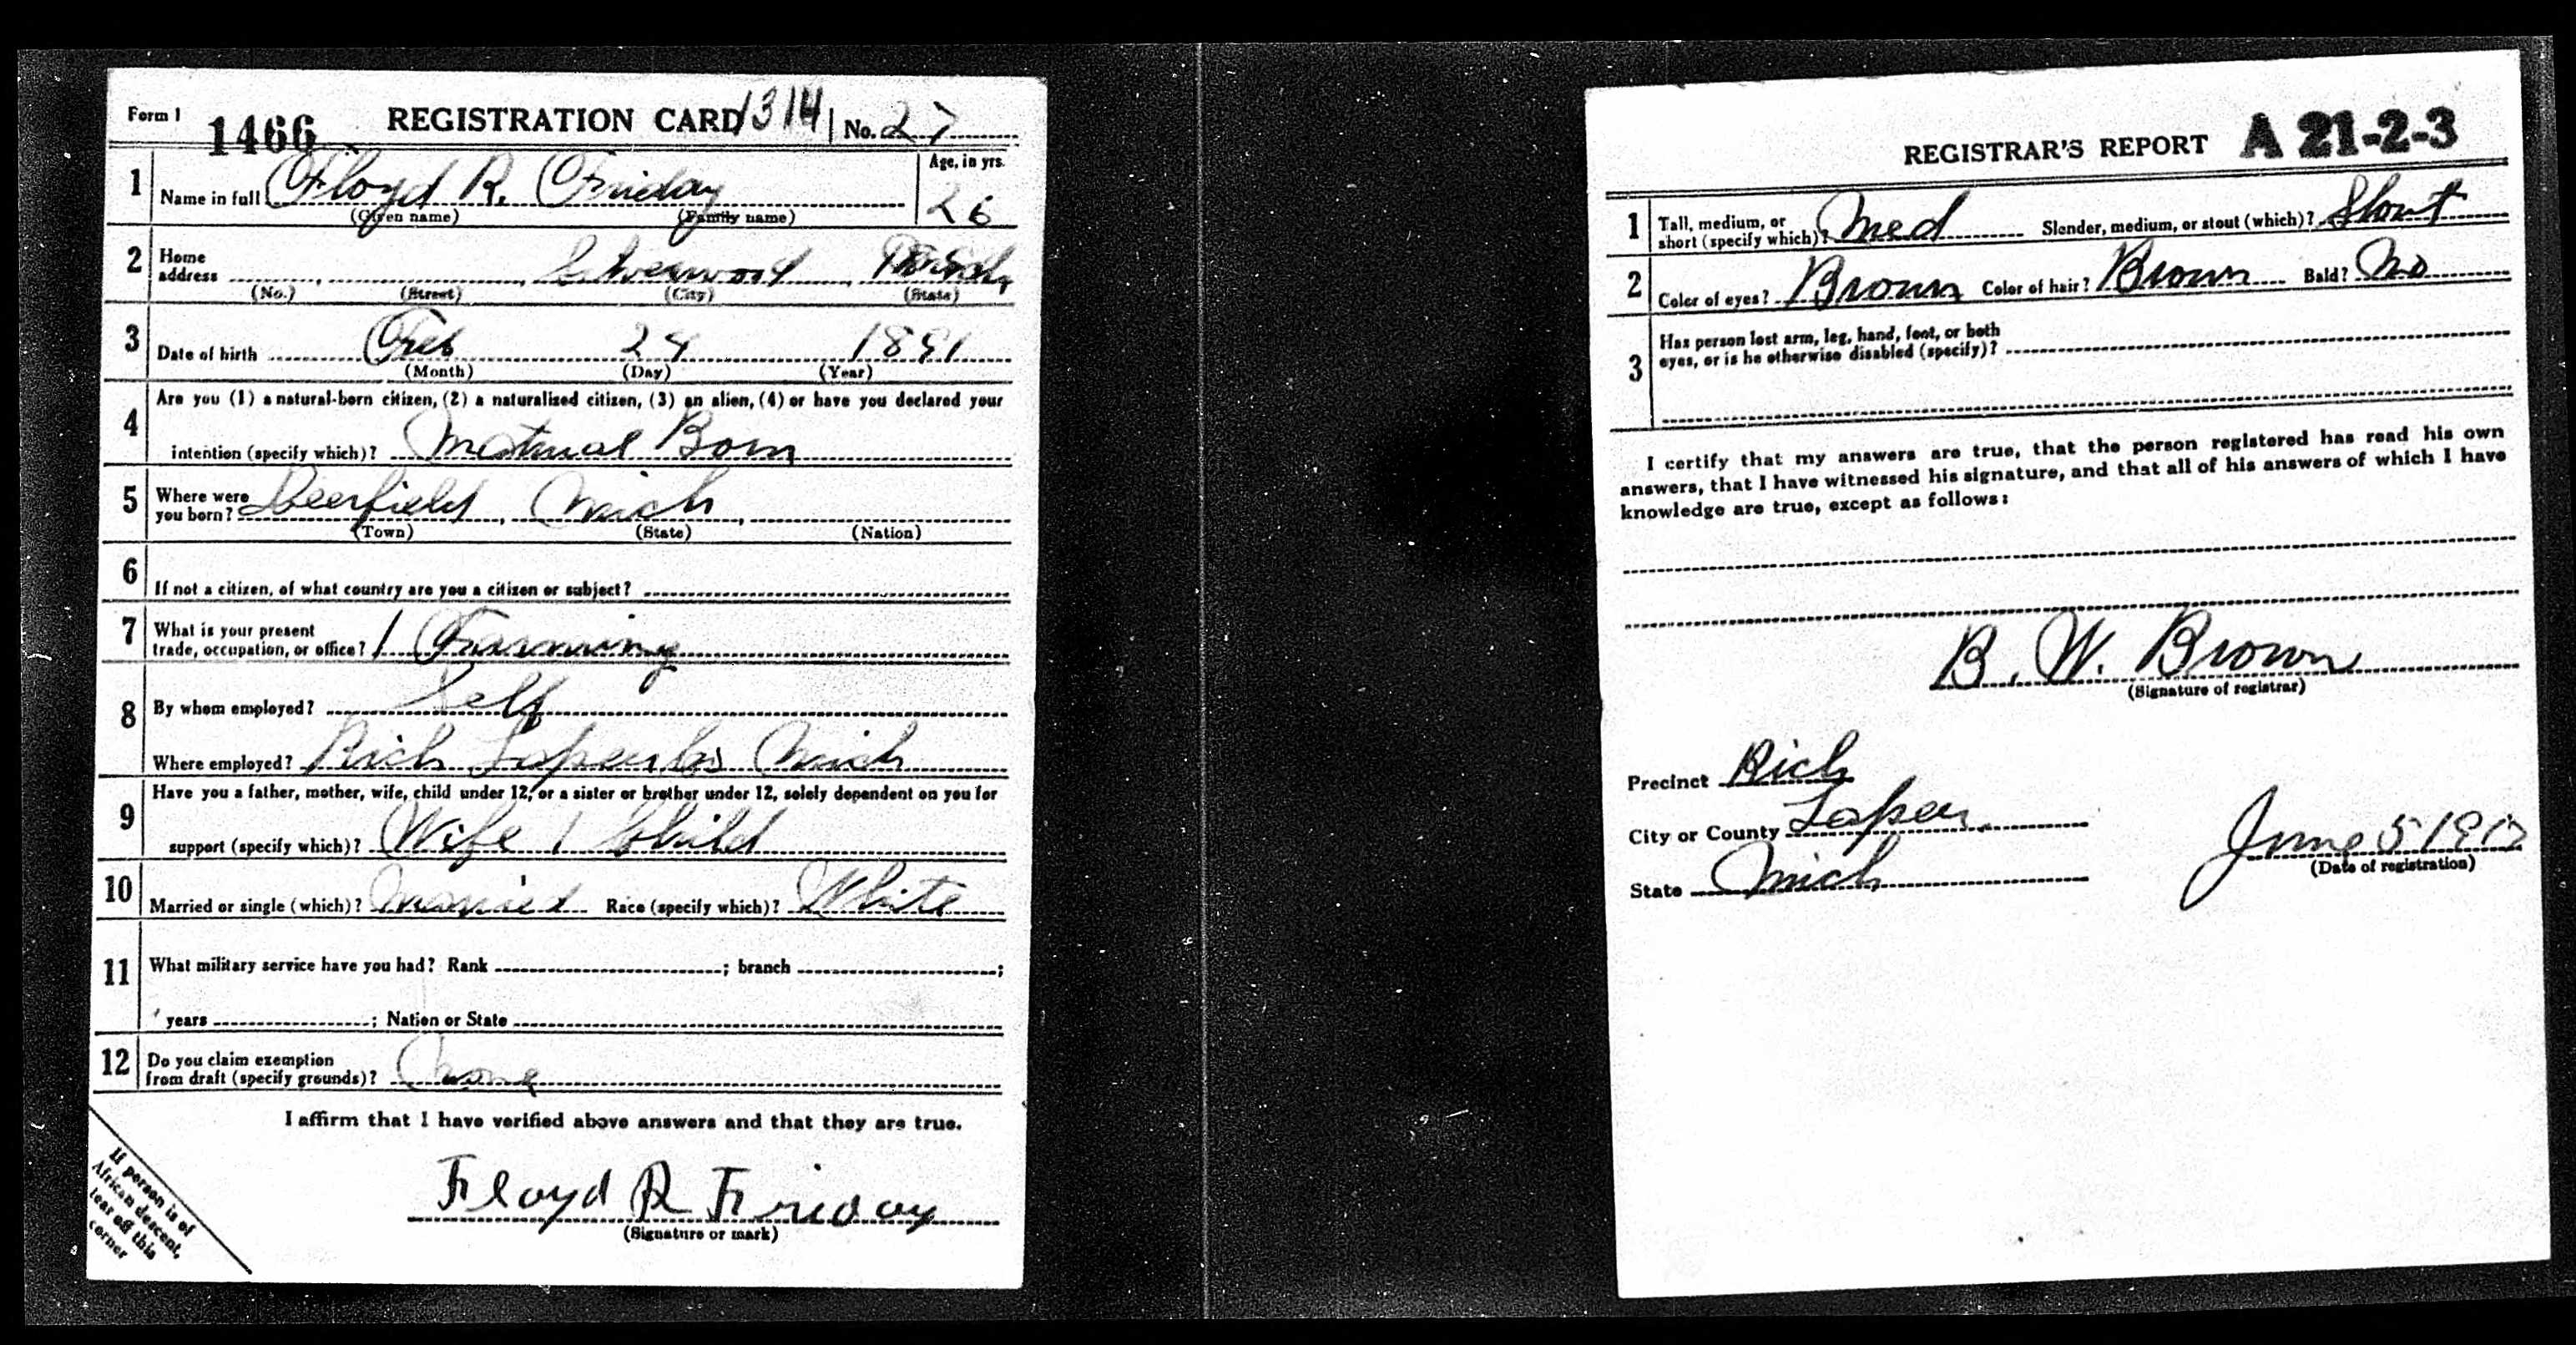 Form 1 1466 REGISTRATION CARD 1314 No. 27
1 Name in full Floyd R. Friday Age, in yrs. 26
(Given name) (Family name)
2 Home address Silverwood Mich
(No.) (Street) (City) (State)
3 Date of birth Feb 24 1891
(Month) (Day) (Year)
4 Are you (1) a natural-born citizen, (2) a naturalized citizen, (3) an alien, (4) or have you declared your
intention (specify which)? Natural Born
5 Where were you born? Deerfield, Mich,
(Town) (State) (Nation)
6 If not a citizen, of what country are you a citizen or subject?
7 What is your present
trade, occupation, or office? / Farming
8 By whom employed? Self
Where employed? Rich Lapeer Co Mich
9 Have you a father, mother, wife, child under 12, or a sister or brother under 12, solely dependent on you for
support (specify which)? Wife 1 Child
10 Married or single (which)? Married Race (specify which)? White
11 What military service have you had? Rank ; branch ;
years ; Nation or State
12 Do you claim exemption
from draft (specify grounds)? None
I affirm that I have verified above answers and that they are true.
Floyd R Friday
(Signature or mark)
If person is of
African descent,
tear off this
corner
REGISTRAR'S REPORT A 21-2-3
1 Tall, medium, or
short (specify which)? Med Slender, medium, or stout (which)? Stout
2 Color of eyes? Brown Color of hair? Brown Bald? No
3 Has person lost arm, leg, hand, foot, or both
eyes, or is he otherwise disabled (specify)?
I certify that my answers are true, that the person registered has read his own
answers, that I have witnessed his signature, and that all of his answers of which I have
knowledge are true, except as follows:
B. W. Brown
(Signature of registrar)
Precinct Rich
City or County Lapeer
State Mich
June 5 1917
(Date of registration)